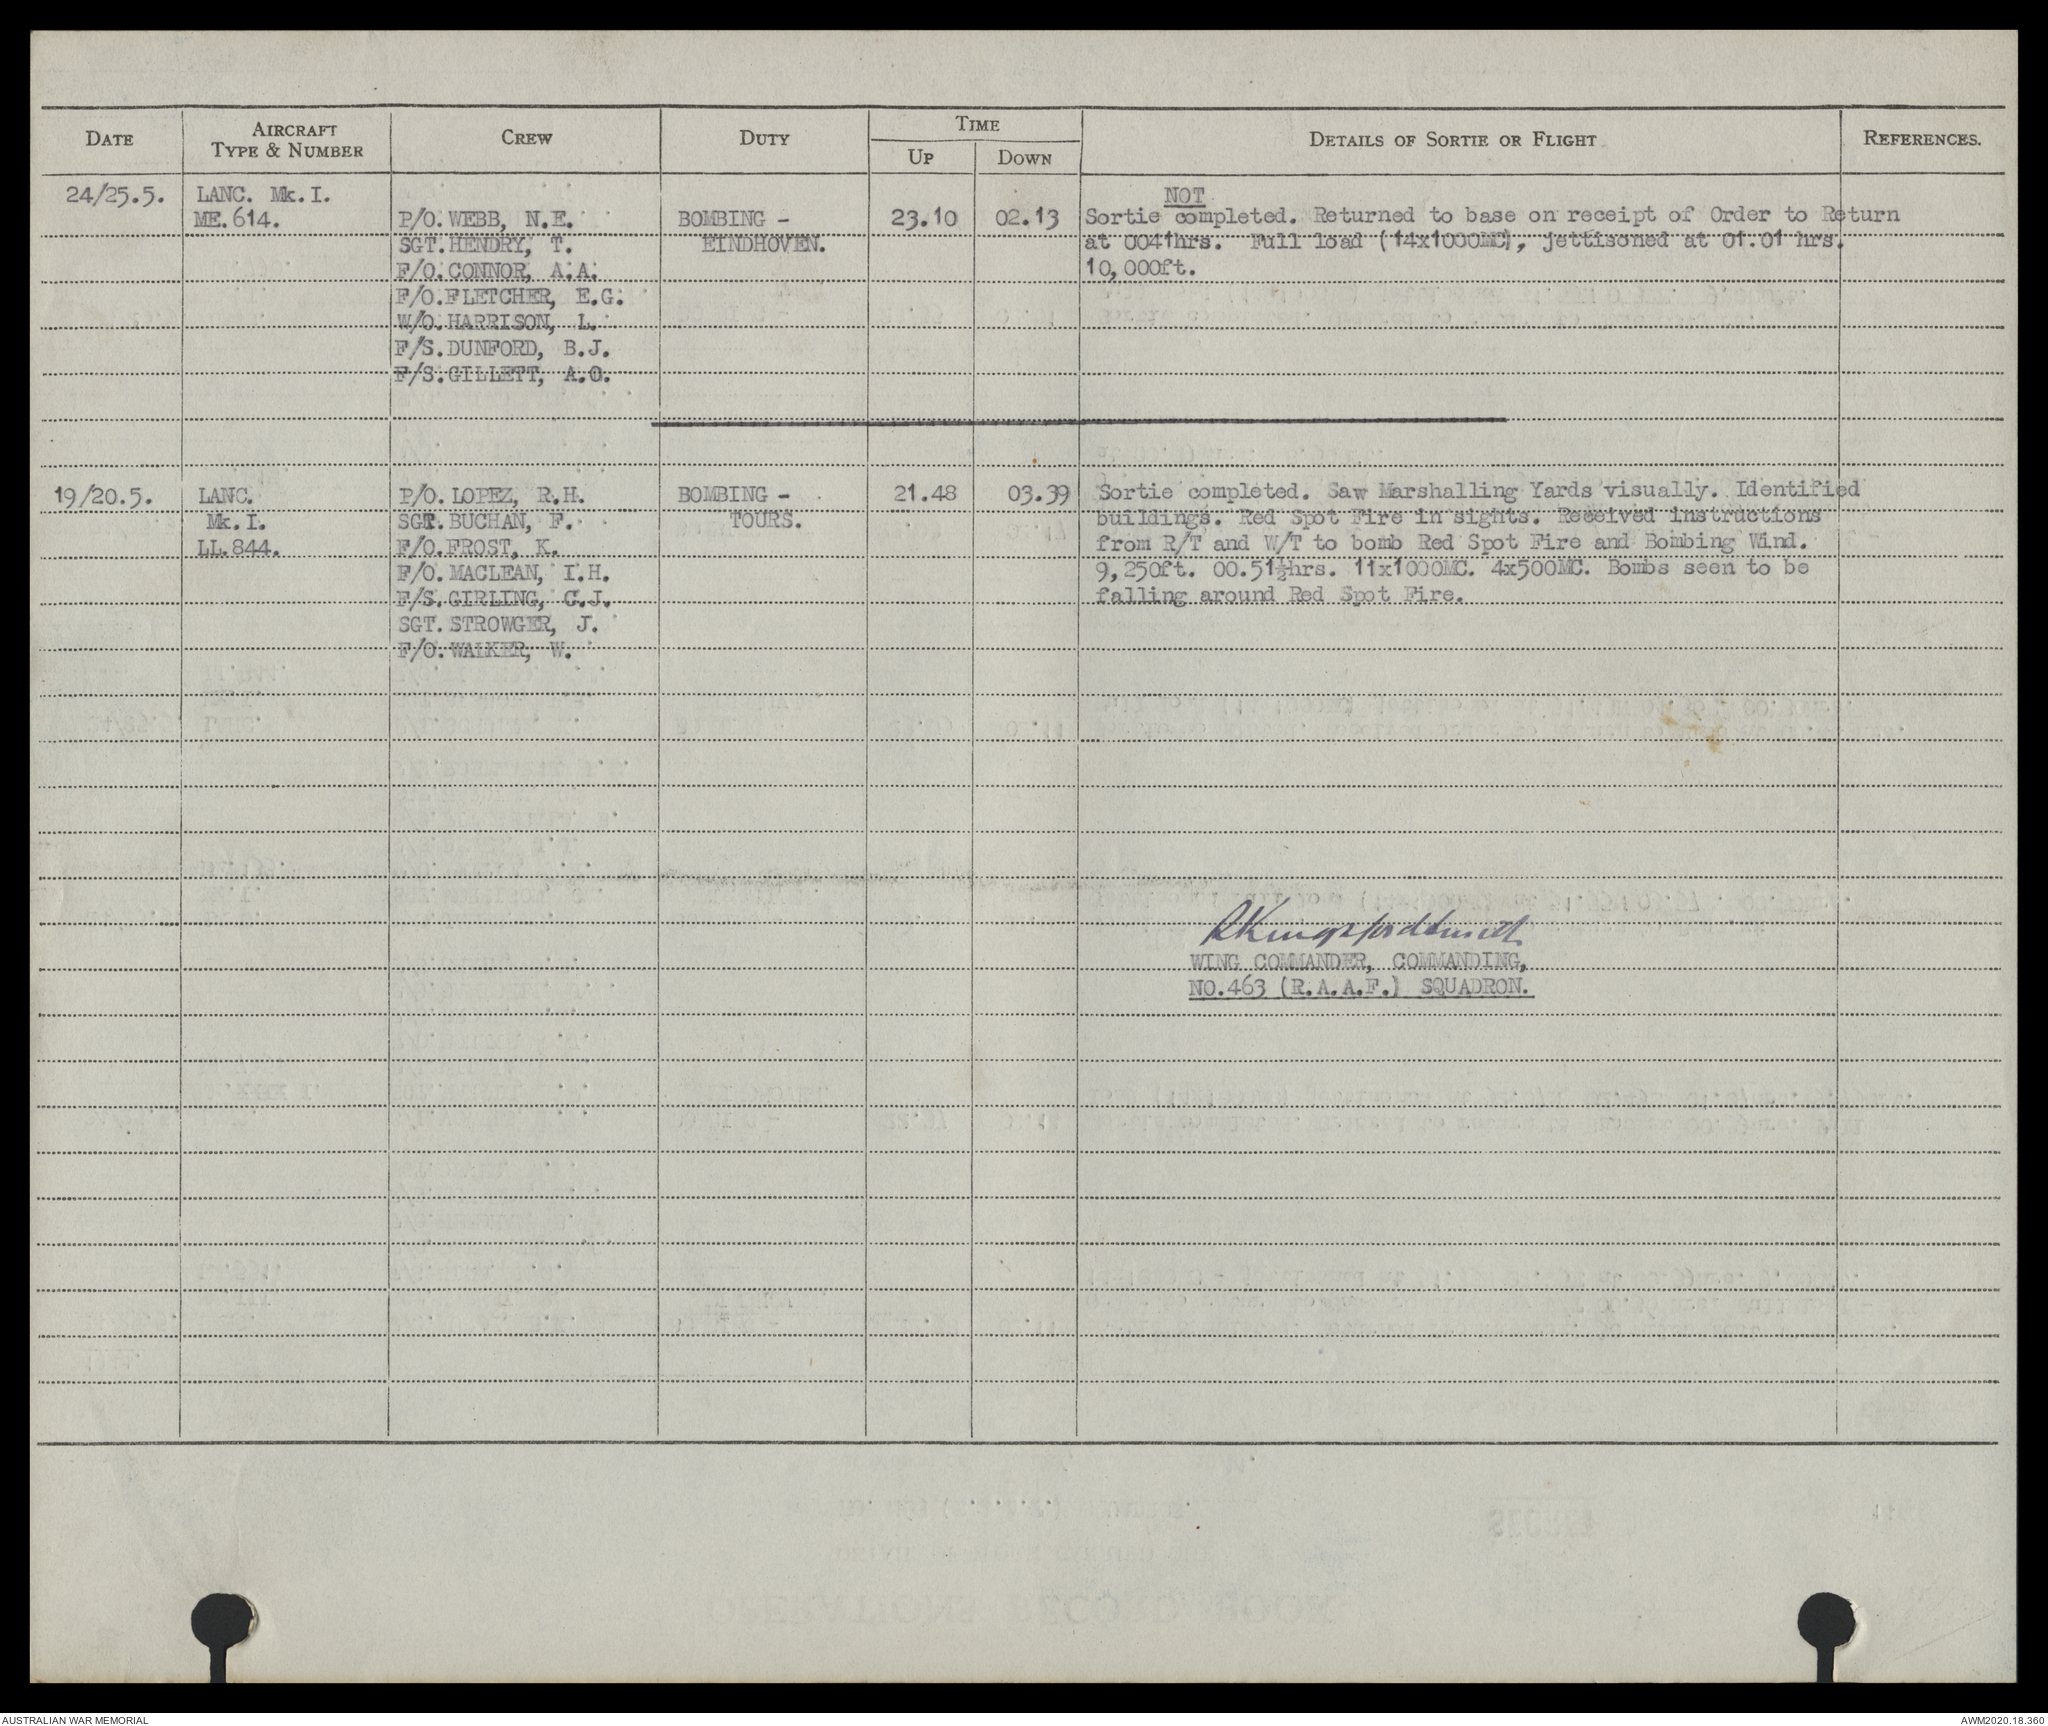 DATE AIRCRAFT TYPE & NUMBER CREW DUTY TIME UP DOWN DETAILS OF SORTIE OR FLIGHT REFERENCES.
24/25.5. LANC. Mk.I. NOT
ME.614. P/O. WEBB, N.E. BOMBING - 23.10 02.13 Sortie completed. Returned to base on receipt of Order to Return
SGT. HENDRY, T. EINDHOVEN. at 0041hrs. Full load (14x1000MC), jettisoned at 01.01 hrs.
F/O. CONNOR, A.A. 10,000ft.
F/O. FLETCHER, E.G.
W/O. HARRISON, L.
F/S. DUNFORD, B.J.
F/S. GILLETT, A.O.
19/20.5. LANC. P/O. LOPEZ, R.H. BOMBING - 21.48 03.39 Sortie completed. Saw Marshalling Yards visually. Identified
Mk.I. SGT. BUCHAN, F. TOURS. buildings. Red Spot Fire in sights. Received instructions
LL.844. F/O. FROST, K. from R/T and W/T to bomb Red Spot Fire and Bombing Wind.
F/O. MACLEAN, I.H. 9,250ft. 00.51½hrs. 11x1000MC. 4x500MC. Bombs seen to be
F/S. GIRLING, C.J. falling around Red Spot Fire.
SGT. STROWGER, J.
F/O. WALKER, W.
RKingsfordsmith
WING COMMANDER, COMMANDING,
NO.463 (R.A.A.F.) SQUADRON.
AUSTRALIAN WAR MEMORIAL AWM2020.18.360